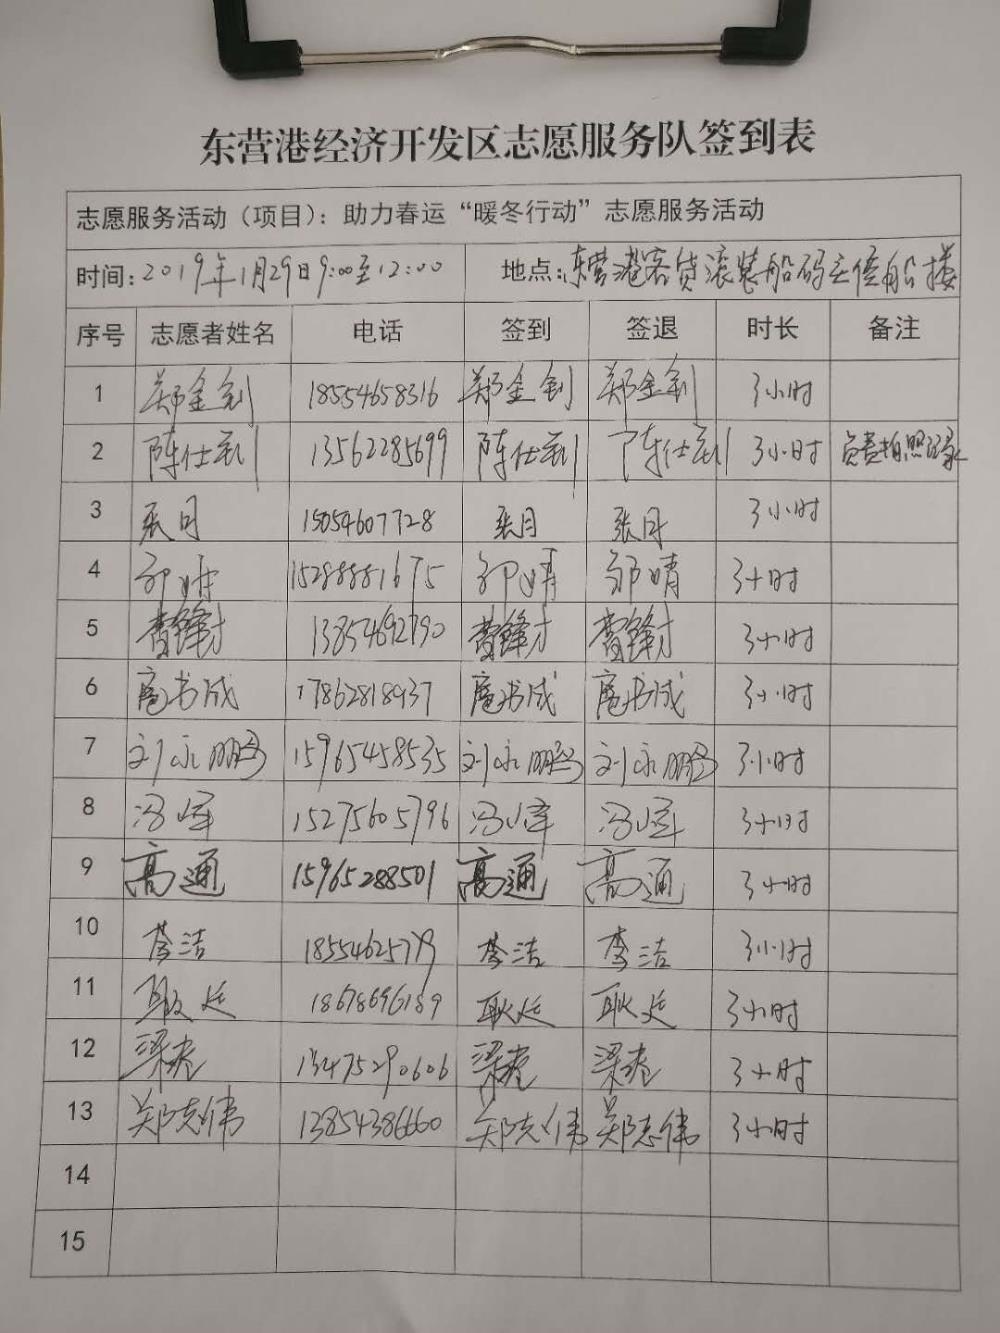 东营港经济开发区志愿服务队签到表
志愿服务活动（项目）：助力春运“暖冬行动”志愿服务活动
时间：2019年1月29日9:00至12:00 地点：东营港客货滚装船码头候船楼
序号 志愿者姓名 电话 签到 签退 时长 备注
1 郑金钊 18554658316 郑金钊 郑金钊 3小时
2 陈仕利 13562285699 陈仕利 陈仕利 3小时 免费拍照记录
3 张月 15054607728 张月 张月 3小时
4 邹婧 15288881675 邹婧 邹婧 3小时
5 曹锋才 13854692790 曹锋才 曹锋才 3小时
6 庞书成 17862818937 庞书成 庞书成 3小时
7 刘永鹏 15965458535 刘永鹏 刘永鹏 3小时
8 冯峰 15275605796 冯峰 冯峰 3小时
9 高通 15965288501 高通 高通 3小时
10 李洁 李洁 李洁 3小时
11 耿廷 18678696189 耿廷 耿廷 3小时
12 梁 13475290606 梁 梁 3小时
13 郑志伟 13854386660 郑志伟 郑志伟 3小时
14
15